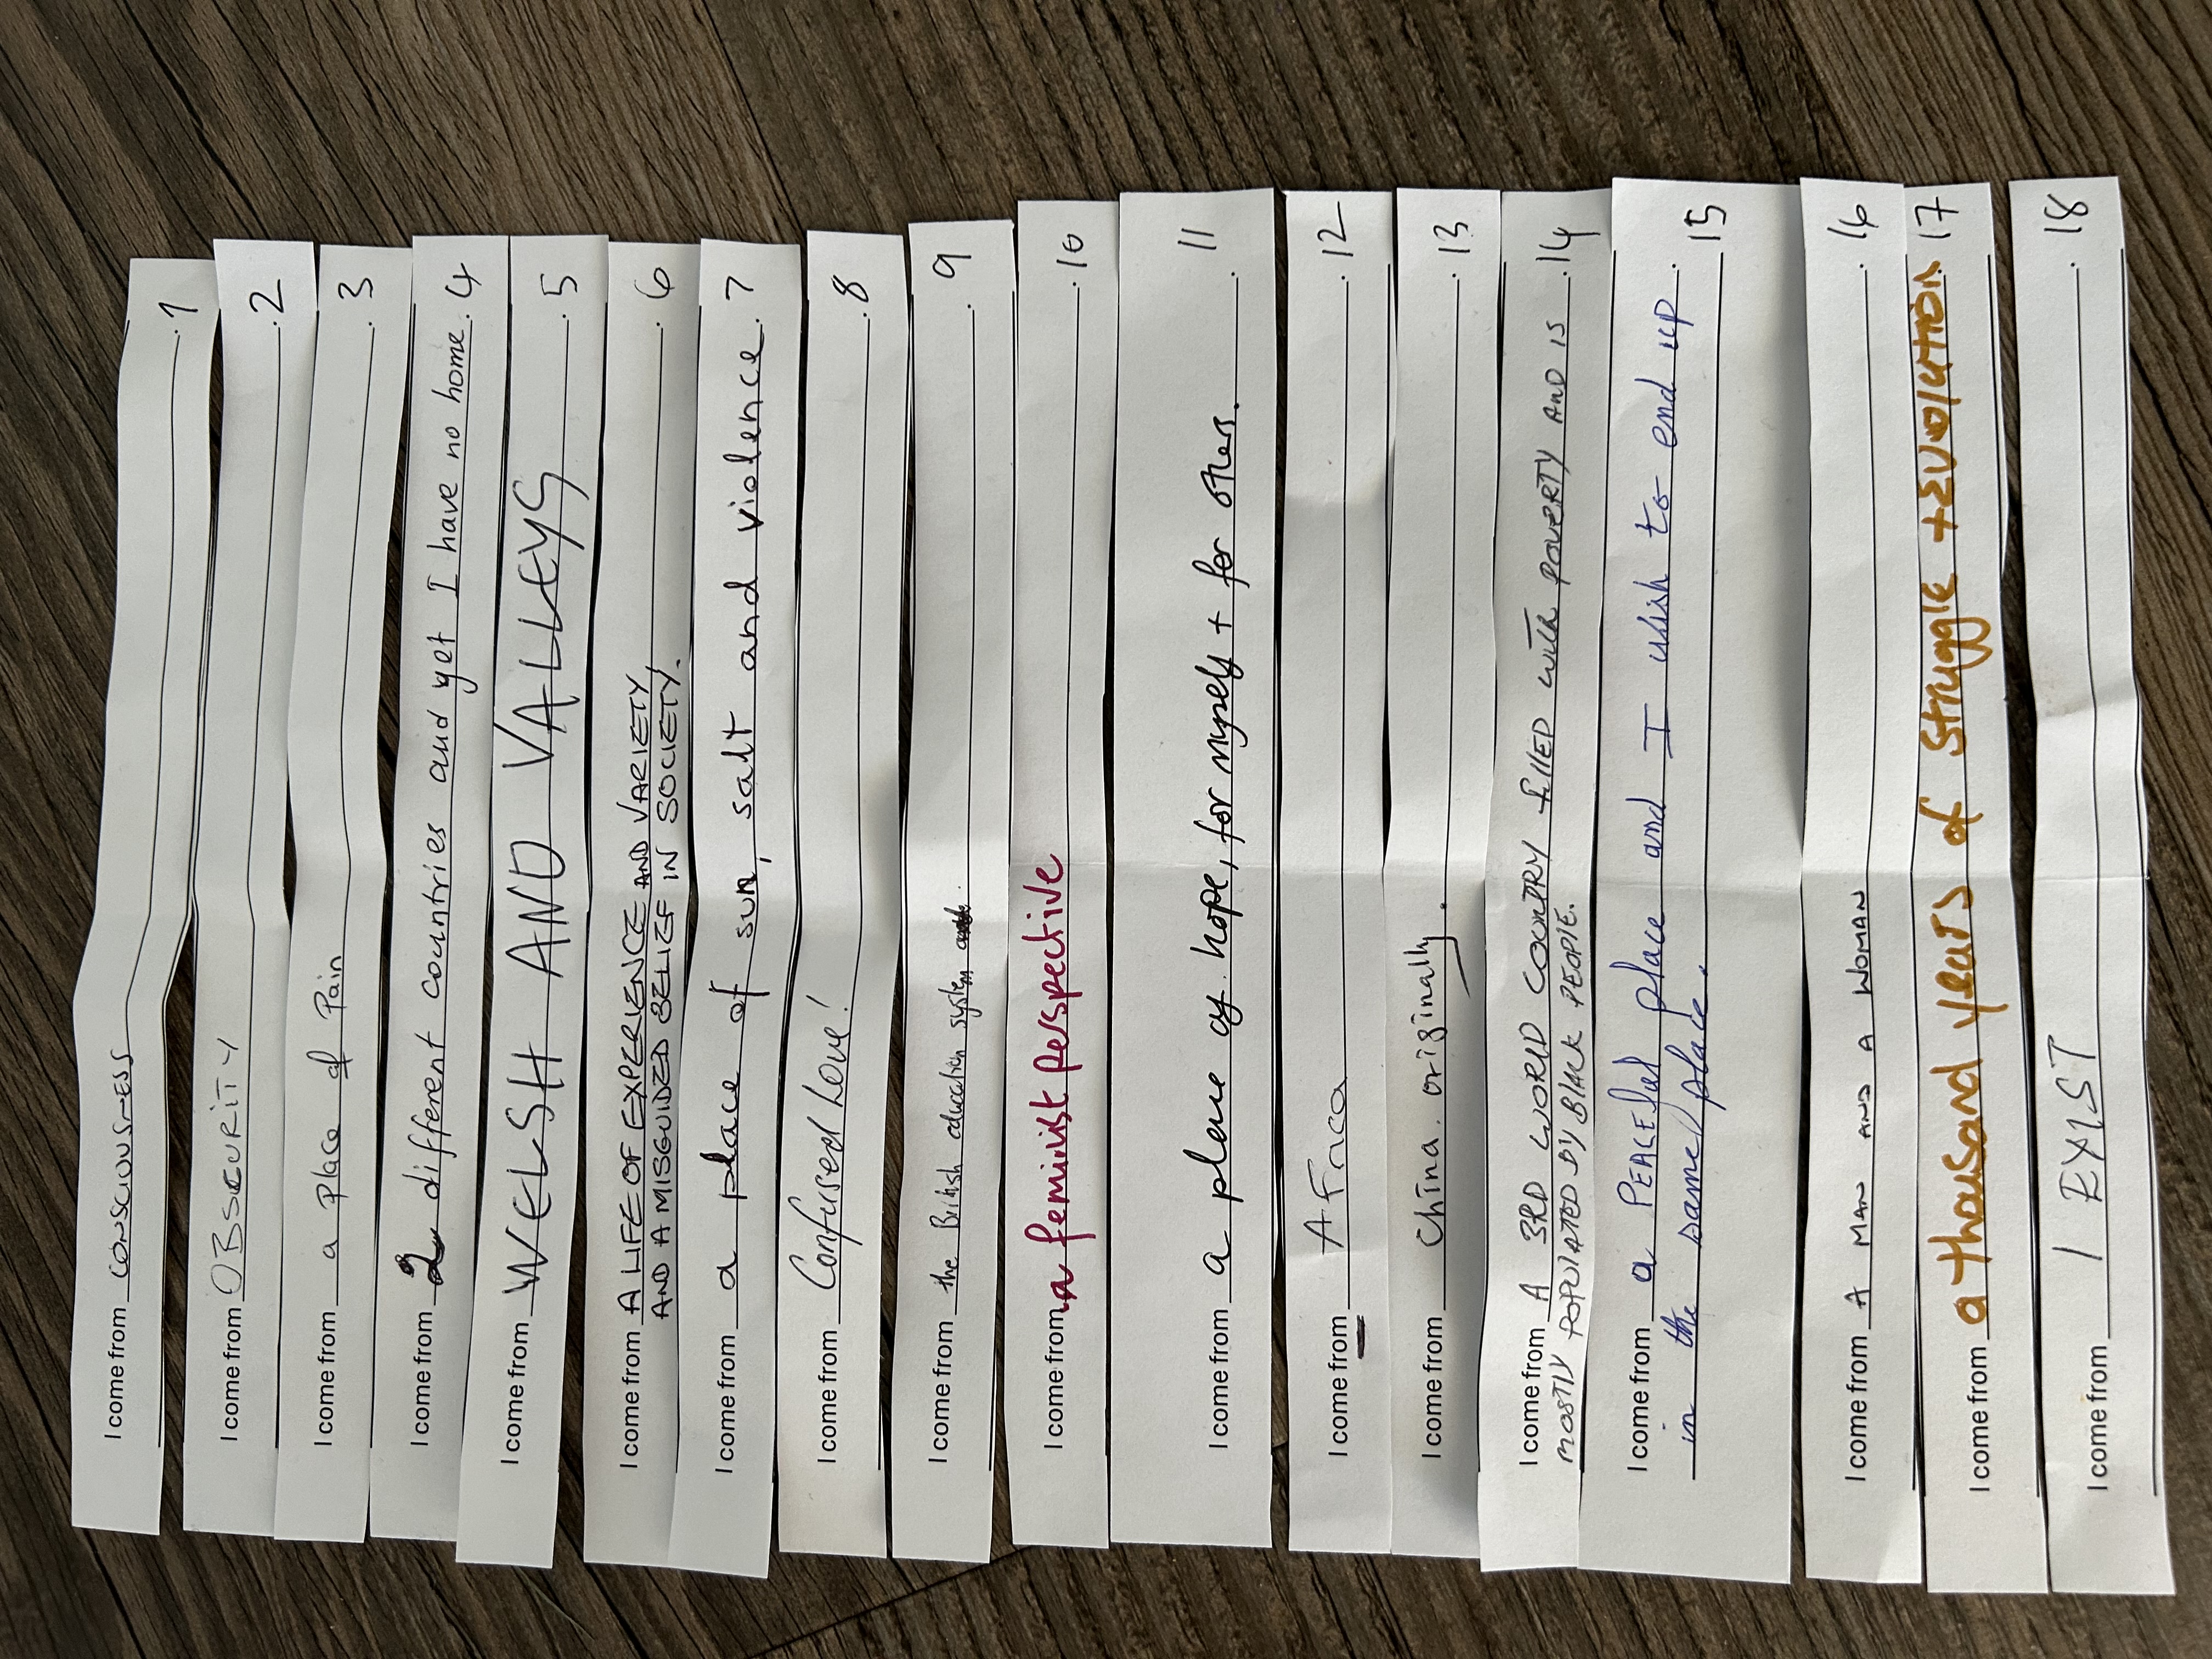 I come from CONSCIOUSNESS . 1
I come from OBSCURITY . 2
I come from a place of Pain . 3
I come from 2 different countries and yet I have no home . 4
I come from WELSH AND VALLEYS . 5
I come from A LIFE OF EXPERIENCE AND VARIETY . 6
AND A MISGUIDED BELIEF IN SOCIETY.
I come from a place of sun, salt and violence . 7
I come from Confused Love! . 8
I come from the British education system . 9
I come from a feminist perspective . 10
I come from a place of hope, for myself + for others. . 11
I come from AFrica . 12
I come from China. originally. . 13
I come from A 3RD WORLD COUNTRY filled with POVERTY AND IS . 14
MOSTLY POPULATED BY BLACK PEOPLE.
I come from a PEACEful place and I wish to end up . 15
in the same place.
I come from A MAN AND A WOMAN . 16
I come from a thousand years of struggle + EVOLUTION . 17
I come from I EXIST . 18